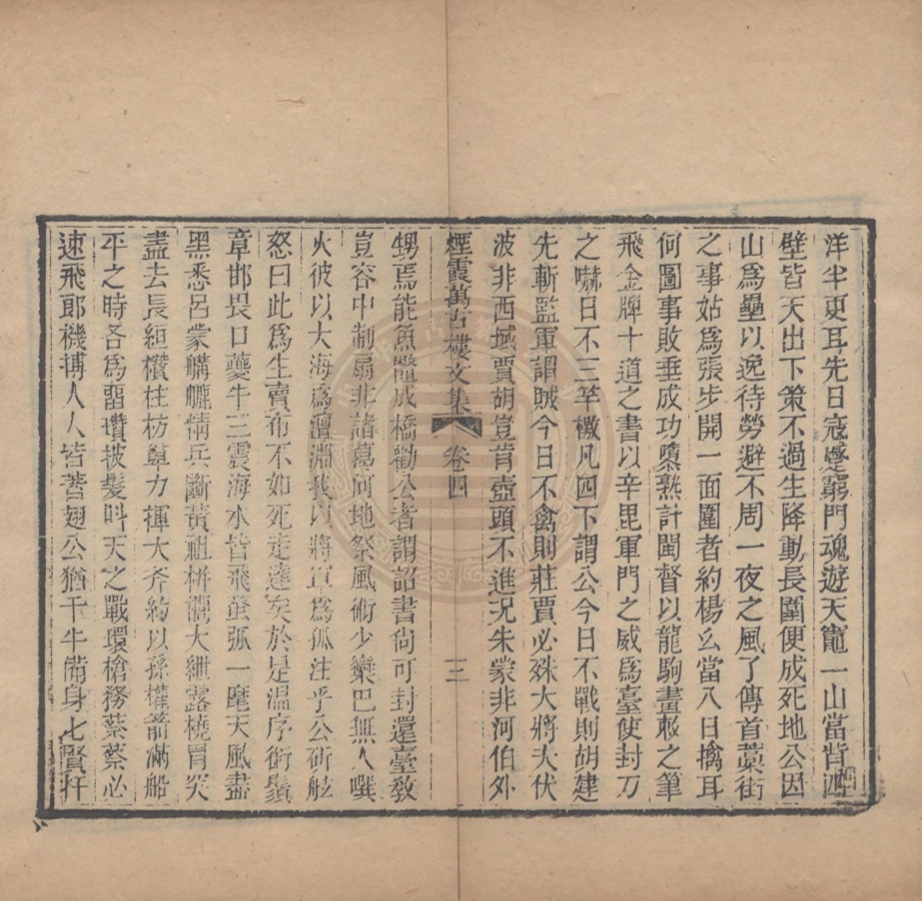 洋半更耳先日寇蹙窮門魂遊天竈一山當背四
壁皆天出下策不過生降動長圍便成死地公因
山爲壘以逸待勞避不周一夜之風了傳首藁街
之事姑爲張步開一面圍者約楊么當八日擒耳
何圖事敗垂成功隳熟計閫督以龍駒畫敕之筆
飛金牌十道之書以辛毘軍門之威爲臺使封刀
之嚇日不三竿檄凡四下謂公今日不戰則胡建
先斬監軍謂賊今日不禽則莊賈必殊大將夫伏
波非西域賈胡豈肯壺頭不進況朱蒙非河伯外
煙霞萬古樓文集 卷四 三
甥焉能魚鼈成橋勸公者謂詔書尙可封還臺敎
豈容中制扇非諸葛何地祭風術少欒巴無人噀
火彼以大海爲澶淵我以將軍爲孤注乎公斫舷
怒曰此爲生賣布不如死走達矣於是溫序銜鬚
章邯畏口夔牛三震海水皆飛蝥弧一麾天風盡
黑悉呂蒙䑠精兵斷黃祖栟櫚大紲露橈冒突
盡去長絙欑柱枋𥱼力揮大斧約以孫權箭滿船
平之時各爲習瓚披髮呌天之戰環槍務蔡蔡必
速飛郞機搏人人皆著翅公猶千牛備身七賢扞